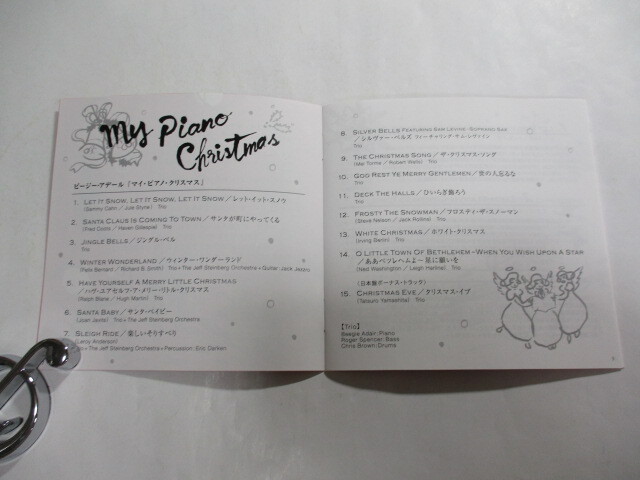 My Piano
Christmas
ビージー・アデール「マイ・ピアノ・クリスマス」
1. LET IT SNOW, LET IT SNOW, LET IT SNOW／レット・イット・スノウ
(Sammy Cahn / Jule Styne) Trio
2. SANTA CLAUS IS COMING TO TOWN／サンタが町にやってくる
(Fred Coots / Haven Gillespie) Trio
3. JINGLE BELLS／ジングル・ベル
Trio
4. WINTER WONDERLAND／ウィンター・ワンダーランド
(Felix Bernard / Richard B. Smith) Trio+The Jeff Steinberg Orchestra+Guitar: Jace
5. HAVE YOURSELF A MERRY LITTLE CHRISTMAS
／ハヴ・ユアセルフ・ア・メリー・リトル・クリスマス
(Ralph Blane / Hugh Martin) Trio
6. SANTA BABY／サンタ・ベイビー
(Joan Javits) Trio+The Jeff Steinberg Orchestra
7. SLEIGH RIDE／楽しいそりすべり
(Leroy Anderson)
Trio+The Jeff Steinberg Orchestra+Percussion: Eric Darken
8. SILVER BELLS FEATURING SAM LEVINE -SOPRANO SAX
／シルヴァー・ベルズ フィーチャリング・サム・レヴァイン
Trio
9. THE CHRISTMAS SONG／ザ・クリスマス・ソング
(Mel Torme / Robert Wells) Trio
10. GOD REST YE MERRY GENTLEMEN／世の人忘るな
Trio
11. DECK THE HALLS／ひいらぎ飾ろう
Trio
12. FROSTY THE SNOWMAN／フロスティ・ザ・スノーマン
(Steve Nelson / Jack Rollins) Trio
13. WHITE CHRISTMAS／ホワイト・クリスマス
(Irving Berlin) Trio
14. O LITTLE TOWN OF BETHLEHEM -WHEN YOU WISH UPON A STAR
／ああベツレヘムよ～星に願いを
(Ned Washington / Leigh Harline) Trio
〈日本盤ボーナス・トラック〉
15. CHRISTMAS EVE／クリスマス・イブ
(Tatsuro Yamashita) Trio
【Trio】
Beegie Adair: Piano
Roger Spencer: Bass
Chris Brown: Drums